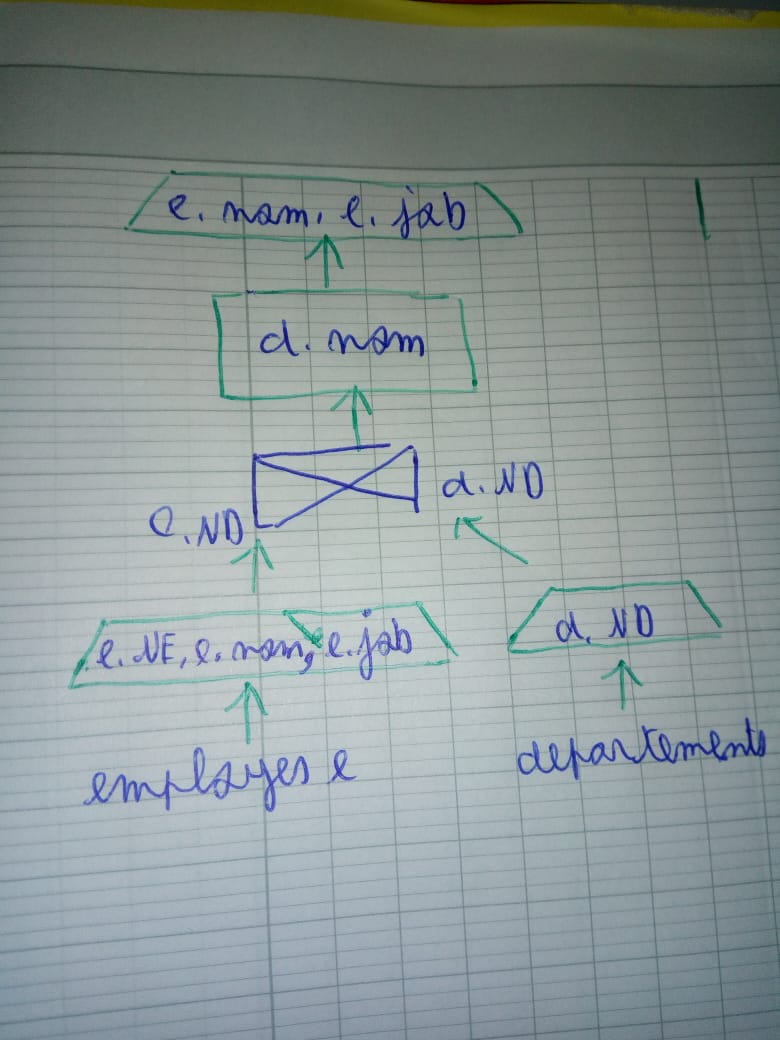 e. nom, e. job
d. nom
d. ND
e. ND
e. NE, e. nom, e. job
d. ND
employes e
departements